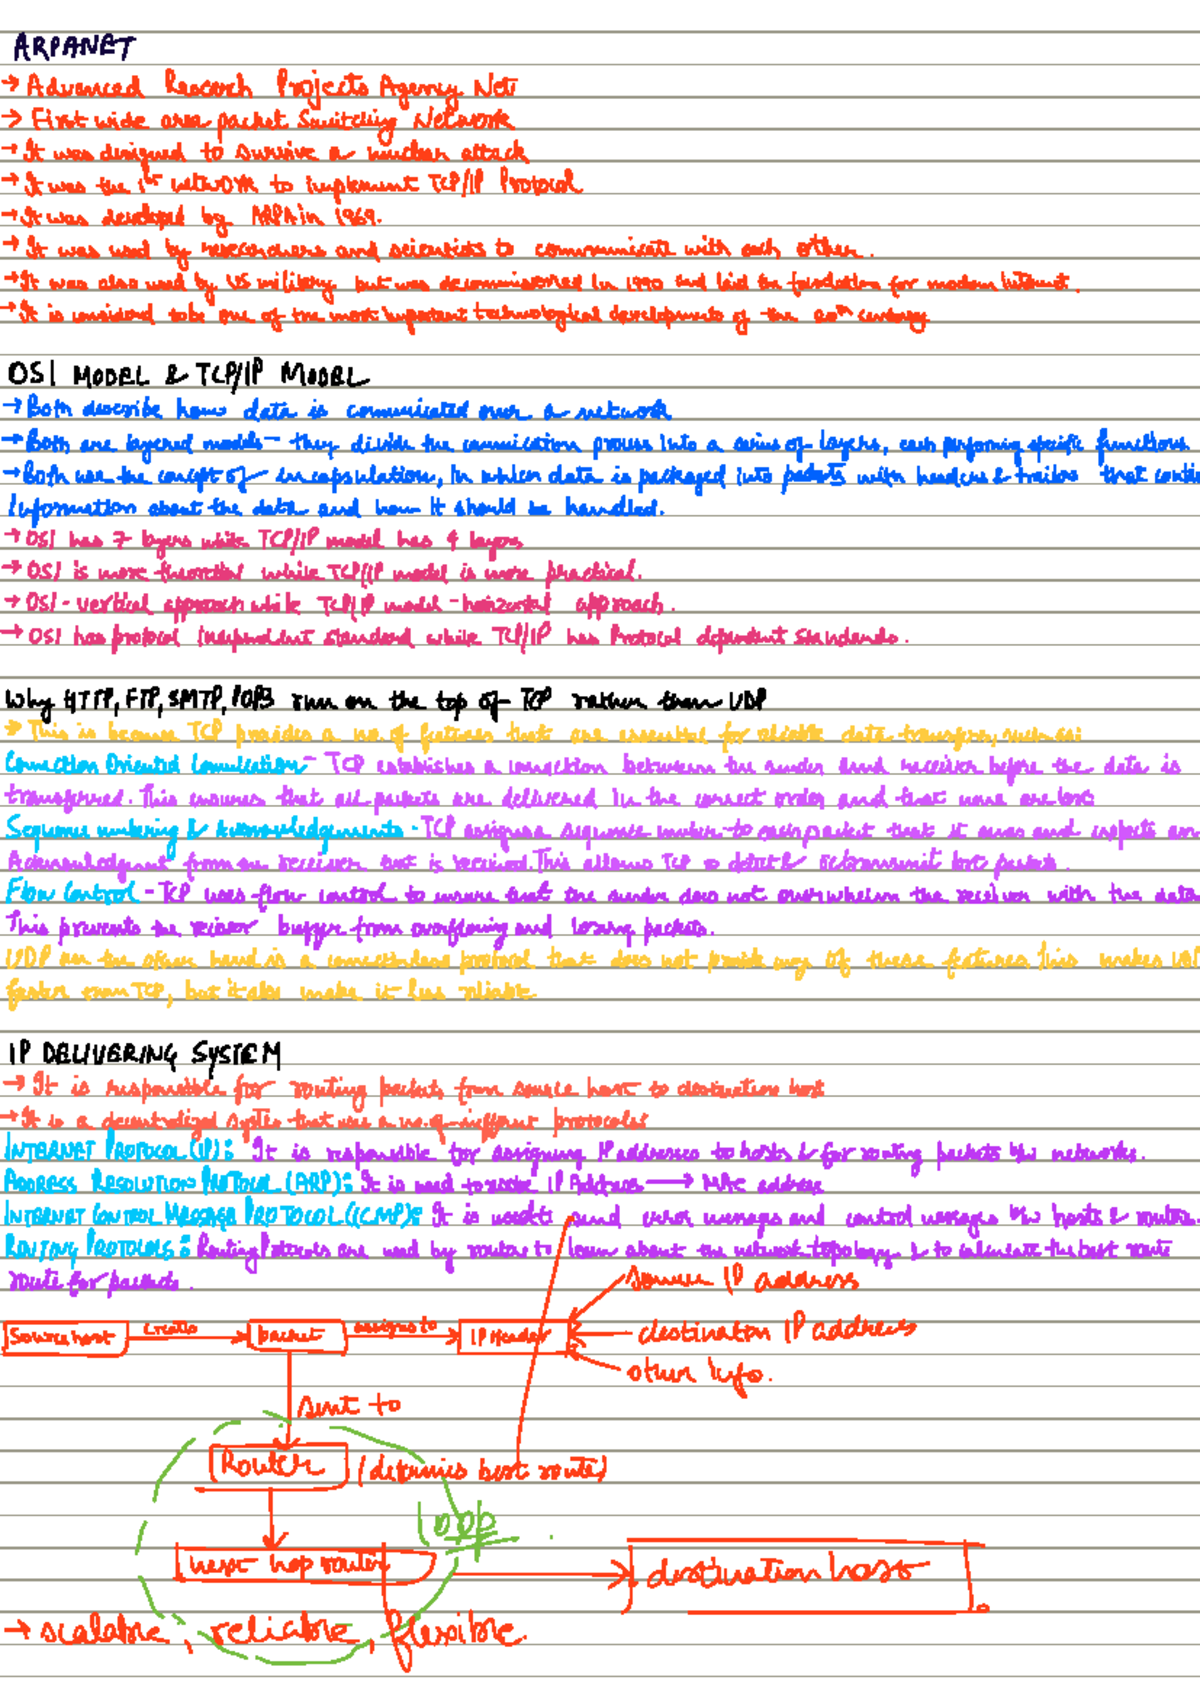 ARPANET
→ Advanced Research Projects Agency Net
→ First wide area packet Switching Network
→ It was designed to survive a nuclear attack
→ It was the 1st network to implement TCP/IP Protocol
→ It was developed by ARPA in 1969.
→ It was used by researchers and scientists to communicate with each other.
→ It was also used by US military but was decommissioned in 1990 and laid the foundation for modern Internet.
→ It is considered to be one of the most important technological developments of the 20th century
OSI MODEL & TCP/IP MODEL
→ Both describe how data is communicated over a network
→ Both are layered models - they divide the communication process into a series of layers, each performing specific functions
→ Both use the concept of encapsulation, in which data is packaged into packets with headers & trailers that
Information about the data and how it should be handled.
→ OSI has 7 layers while TCP/IP model has 4 layers
→ OSI is more theoretical while TCP/IP model is more practical.
→ OSI - vertical approach while TCP/IP model - horizontal approach.
→ OSI has protocol independent standard while TCP/IP has Protocol dependent standards.
Why HTTP, FTP, SMTP, POP3 run on the top of TCP rather than UDP
→ This is because TCP provides a no. of features that are essential for reliable data transfer, such as:
Connection Oriented Communication - TCP establishes a connection between the sender and receiver before the data is
transferred. This ensures that all packets are delivered in the correct order and that none are lost
Sequence numbering & Acknowledgements - TCP assigns a sequence number to each packet that it sends and expects an
Acknowledgment from the receiver that is received. This allows TCP to detect & retransmit lost packets.
Flow Control - TCP uses flow control to ensure that the sender does not overwhelm the receiver with the data
This prevents the receiver buffer from overflowing and losing packets.
UDP on the other hand is a connectionless protocol that does not provide any of these features. This makes UDP
faster than TCP, but it also make it less reliable
IP DELIVERING SYSTEM
→ It is responsible for routing packets from source host to destination host
→ It is a decentralized system that uses a no. of different protocols
INTERNET PROTOCOL (IP): It is responsible for assigning IP addresses to hosts & for routing packets b/w networks.
ADDRESS RESOLUTION PROTOCOL (ARP): It is used to resolve IP Address → MAC address
INTERNET CONTROL MESSAGE PROTOCOL (ICMP): It is used to send error messages and control messages b/w hosts & routers.
ROUTING PROTOCOLS: Routing Protocols are used by routers to learn about the network topology & to calculate the best route
route for packets.
source IP address
Source host creates packet assigns to IP Header destination IP address
other info.
sent to
Router (determines best route)
loop
next hop router destination host
→ scalable, reliable, flexible.